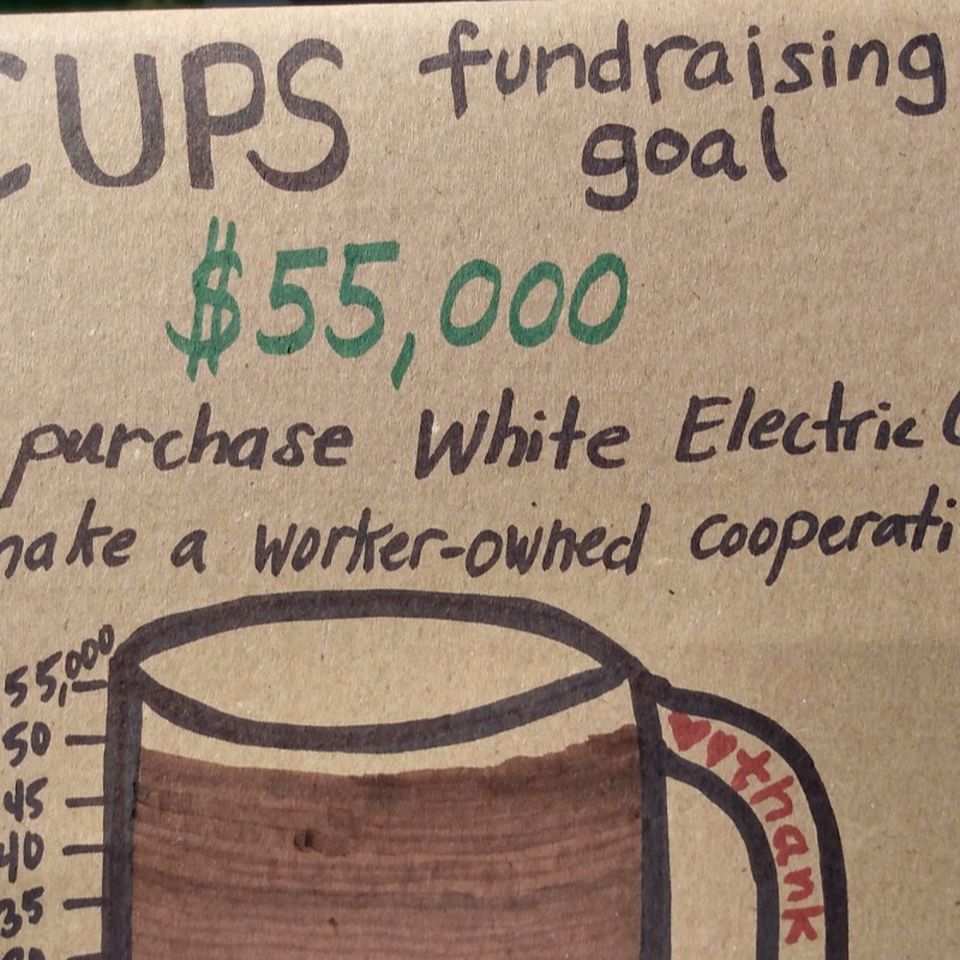 CUPS fundraising
goal
$55,000
purchase White Electric
make a worker-owned cooperati
55,000
50
45
40
35
thank